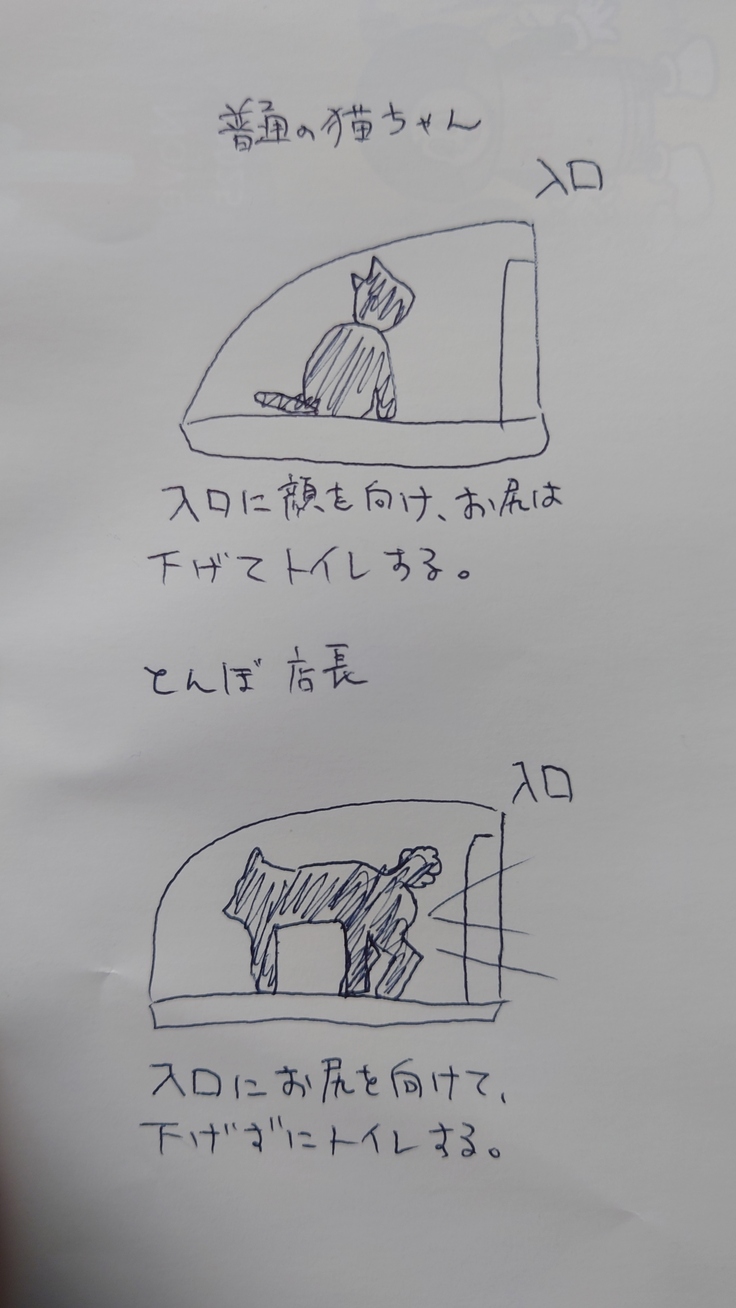 普通の猫ちゃん
入口
入口に顔を向け、お尻は
下げてトイレする。
とんぼ店長
入口
入口にお尻を向けて、
下げずにトイレする。